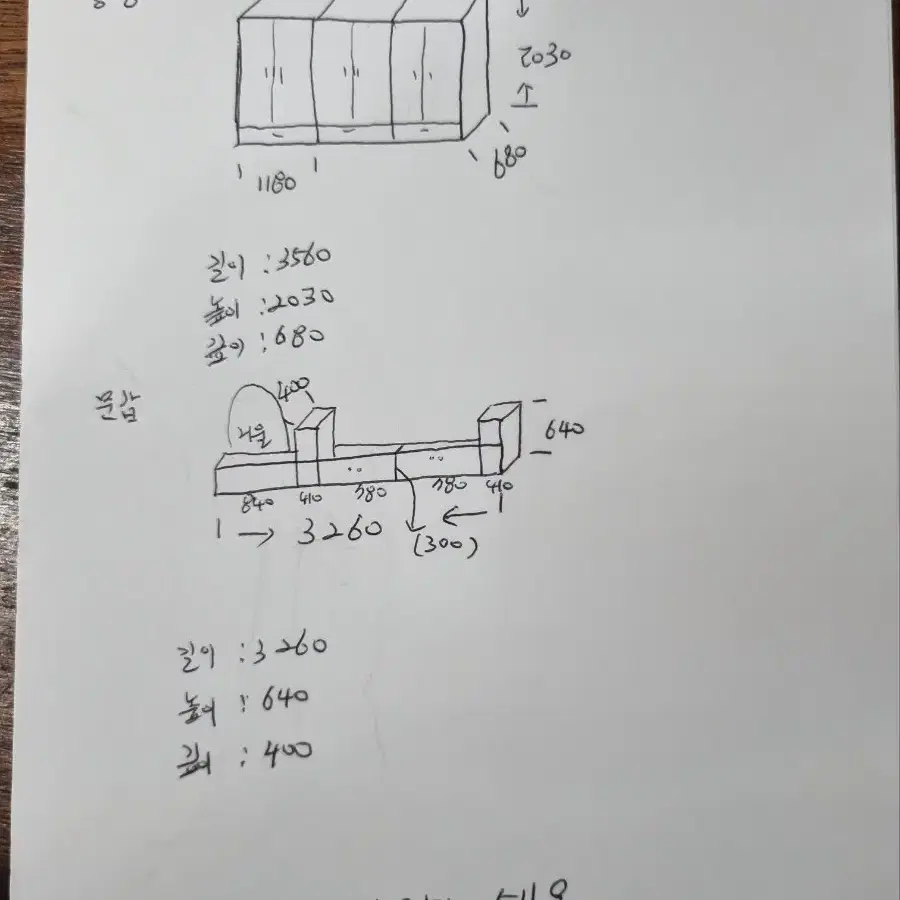 2030
680
1180
길이 : 3560
높이 : 2030
깊이 : 680
문갑
400
거울
640
840 410 780 780 410
→ 3260 ←
(300)
길이 : 3260
높이 : 640
깊이 : 400